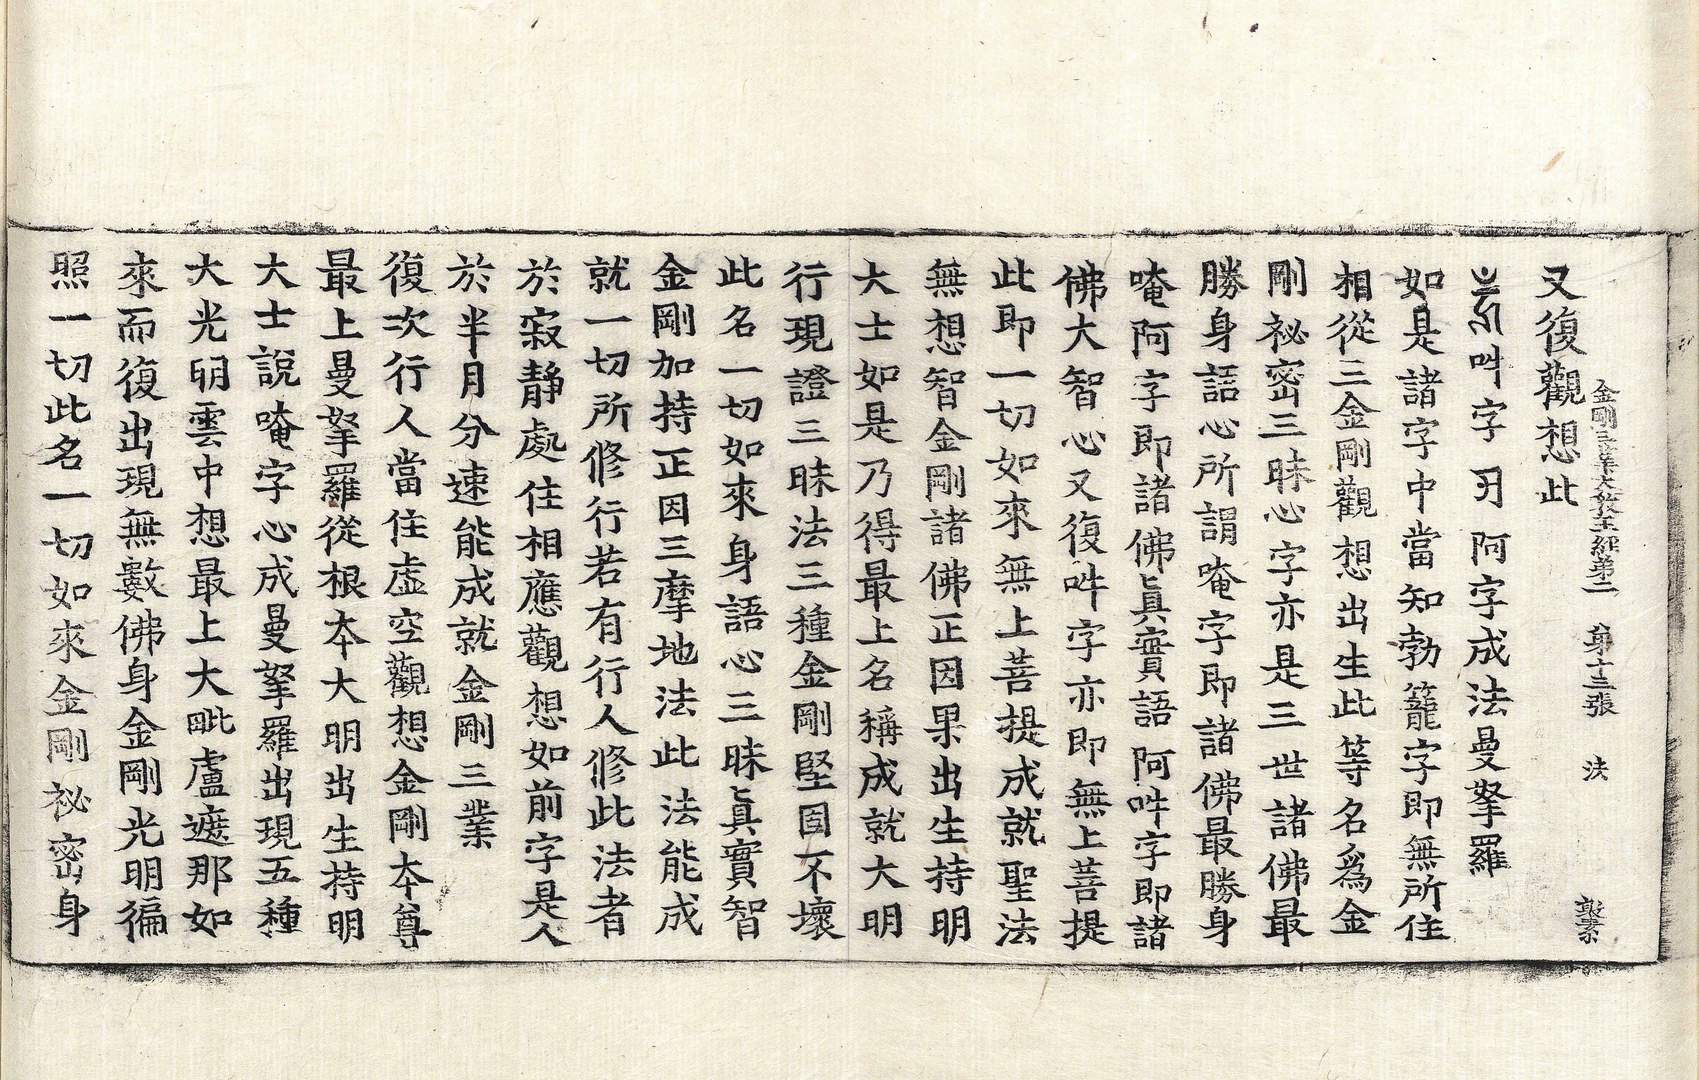 金剛三業大敎王經第二 第十三張 法
又復觀想此
吽字 阿字成法曼拏羅
如是諸字中當知勃籠字即無所住
相從三金剛觀想出生此等名爲金
剛祕密三昧心字亦是三世諸佛最
勝身語心所謂唵字即諸佛最勝身
唵阿字即諸佛眞實語阿吽字即諸
佛大智心又復吽字亦即無上菩提
此即一切如來無上菩提成就聖法
無想智金剛諸佛正因果出生持明
大士如是乃得最上名稱成就大明
行現證三昧法三種金剛堅固不壞
此名一切如來身語心三昧眞實智
金剛加持正因三摩地法此法能成
就一切所修行若有行人修此法者
於寂靜處住相應觀想如前字是人
於半月分速能成就金剛三業
復次行人當住虛空觀想金剛本尊
最上曼拏羅從根本大明出生持明
大士說唵字心成曼拏羅出現五種
大光明雲中想最上大毗盧遮那如
來而復出現無數佛身金剛光明徧
照一切此名一切如來金剛祕密身